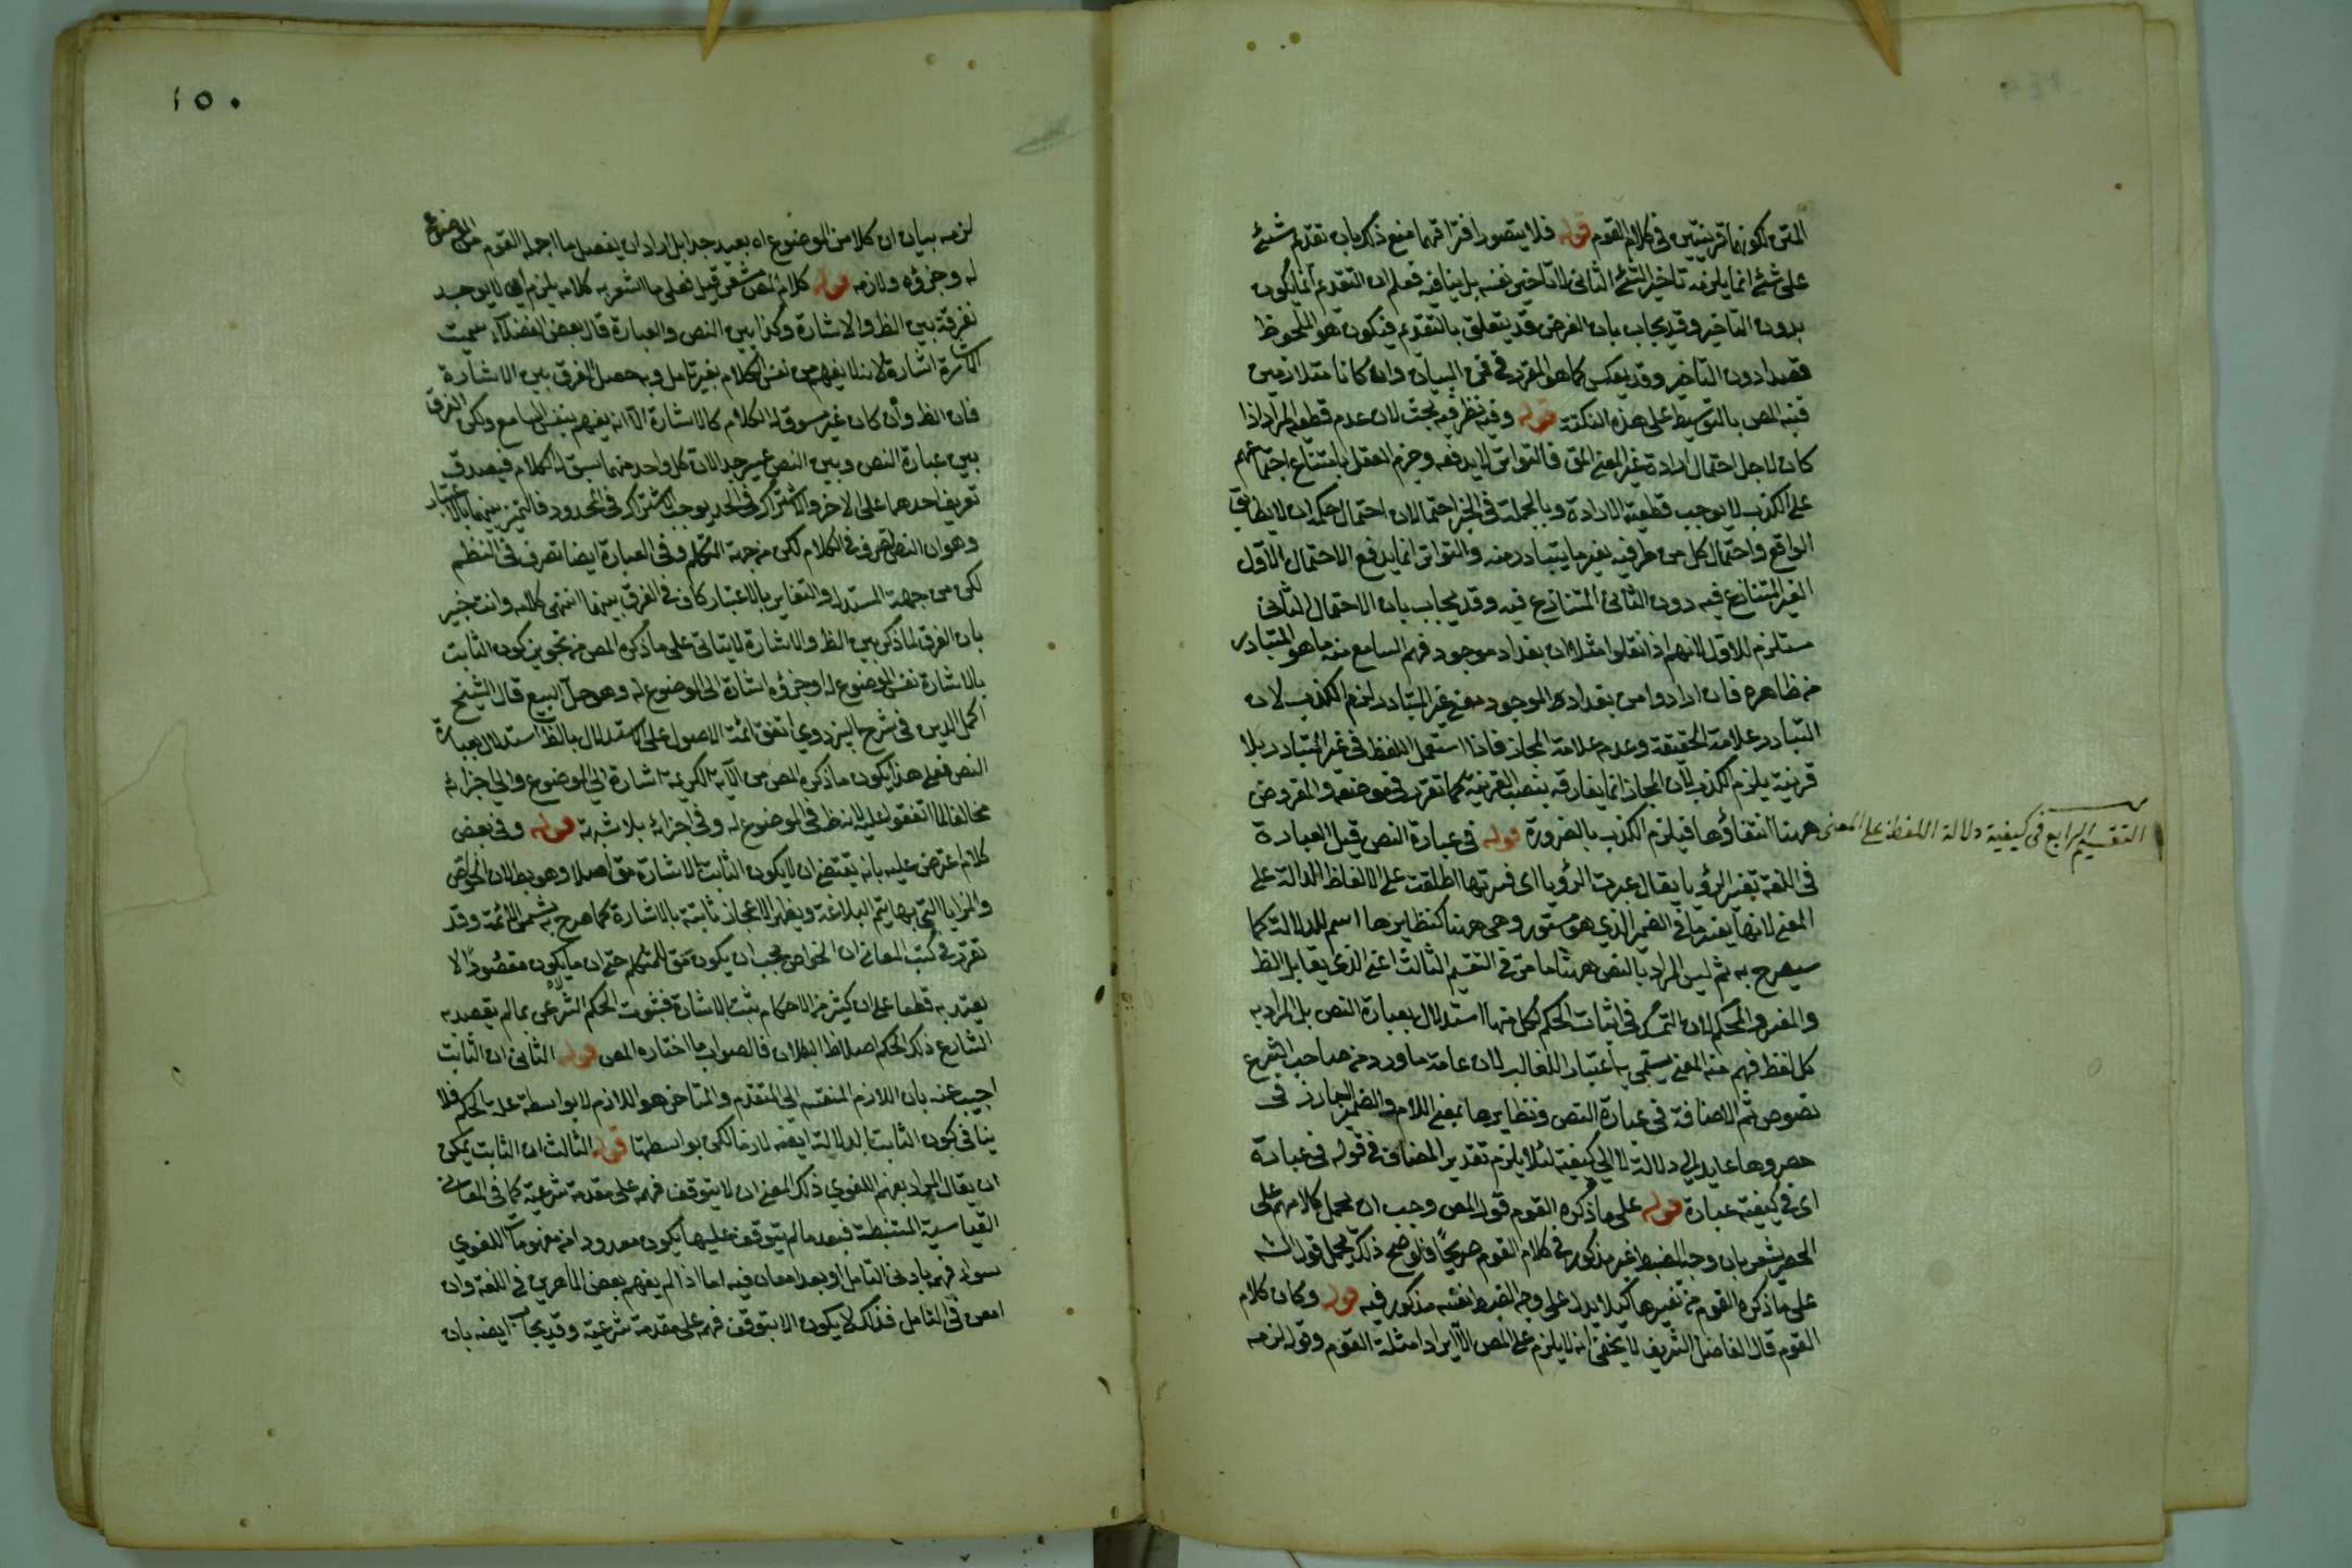 المتن لكونهما قرينتين في كلام القوم قوله فلا يتصور افتراقهما منع ذلك بان تقدم شئ
على شئ انما يلزمه تاخير الشئ الثاني لا تاخير نفسه بل ينافيه فعلم ان التقدم انما يكون
بدون التاخير وقد يجاب بان الغرض قد يتعلق بالتقدم فيكون هو الملحوظ
قصدا دون التاخير وقد يعكس كما هو المقرر في فن البيان وان كانا متلازمين
فنبه المص بالتوسيط على هذه النكتة قوله وفيه نظر فيه بحث لان عدم قطعية المراد اذا
كان لاجل احتمال ارادة غير المعنى فالتواتر لا يدفعه وجزم العقل بامتناع اجتماعهم
على الكذب لا يوجب قطعية الارادة وبالجملة في الخبر احتمالان احتمال حكمه ان لا يطابق
الواقع واحتمال كل من طرفيه بغير ما يتبادر منه والتواتر انما يدفع الاحتمال الاول
الغير المتنازع فيه دون الثاني المتنازع فيه وقد يجاب بان الاحتمال الثاني
مستلزم للاول لانهم اذا نقلوا مثلا ان بغداد موجود فهم السامع منه ما هو المتبادر
من ظاهره فان ارادوا من بغداد او الموجود معنى غير المتبادر لزم الكذب لان
التبادر علامة الحقيقة وعدمه علامة المجاز فاذا استعمل اللفظ في غير المتبادر بلا
قرينة يلزم الكذب لان المجاز انما يفارقه بنصب القرينة كما تقرر في موضعه والمفروض
ههنا انتفاؤها فيلزم الكذب بالضرورة قوله في عبارة النص قيل العبارة
التقسيم الرابع في كيفية دلالة اللفظ على المعنى
في اللغة تفسير الرؤيا يقال عبرت الرؤيا اى فسرتها اطلقت على الالفاظ الدالة على
المعنى لانها تفسر ما في الضمير الذي هو مستور وهي ههنا كنظايرها اسم للدلالة كما
سيصرح به ثم ليس المراد بالنص ههنا ما مر في التقسيم الثالث اعني الذي يقابل الظ
والمفسر والمحكم لان التمسك في اثبات الحكم لكل منها استدلال بعبارة النص بل المراد به
كل لفظ فهم منه المعنى يسمى به اعتبارا للغالب لان عامة ما ورد من صاحب الشرع
نصوص ثم الاضافة في عبارة النص ونظايرها بمعنى اللام والضمير البارز في
حصروها عايد الى دلالة لا الى كيفية لئلا يلزم تقدير المضاف في قوله في عبارة
اى في كيفية عبارة قوله على ما ذكره القوم قول المص وجب ان يحمل كلامهم على
الحصر يشعر بان وجه الضبط غير مذكور في كلام القوم صريحا فلوضح ذلك يحمل قول الش
على ما ذكره القوم من تفسيرها كيلا يدل على وجه الضبط انفسه مذكور فيه قوله وكان كلام
القوم قال الفاضل الشريف لا يخفى انه لا يلزم على المص الا ايراد امثلة القوم وقوله لزمه
١٥٠
لزمه بيان ان كلا من الموضوع اه بعيد جدا بل اراد ان يفصل ما اجمله القوم من الموضوع
له وجزؤه ولازمه قوله كلام المص مشعر قيل فعلى ما اشعر به كلامه يلزم ان لا يوجد
تفرقة بين الظ والاشارة وكذا بين النص والعبارة قال بعض الفضلاء سميت
الاشارة اشارة لانه لا يفهم من نفس الكلام بغير تامل وبه حصل الفرق بين الاشارة
فان الظ وان كان غير مسوق له الكلام كالاشارة الا انه يفهم بنفس السامع ولكن الفرق
بين عبارة النص وبين النص عسير جدا لان كل واحد منهما سيق له الكلام فيصدق
تعريف احدهما على الاخر والاشتراك في الحد يوجب الاشتراك في المحدود فالتميز بينهما بالاعتبار
وهو ان النص تصرف في الكلام لكن من جهة المتكلم وفي العبارة ايضا تصرف في النظم
لكن من جهة المستدل والتغاير بالاعتبار كاف في الفرق بينهما انتهى كلامه وانت خبير
بان الفرق لما ذكر بين الظ والاشارة لا يتاتى على ما ذكره المص من تجويز كون الثابت
بالاشارة نفس الموضوع له او جزؤه اشارة الى الموضوع له وهو حل البيع قال الشيخ
اكمل الدين في شرح البزدوي اتفق ائمة الاصول على ان الاستدلال بالظ استدلال بعبارة
النص فعلى هذا يكون ما ذكره المص من الآية الكريمة اشارة الى الموضوع والى اجزائه
مخالفا لما اتفقوا عليه لانه ظ في الموضوع له وفي اجزائه بلا شبهة قوله وفي بعض
كلام اعترض عليه بانه يقتضي ان لا يكون الثابت بالاشارة مق اصلا وهو بط لان الخواص
والمزايا التي بها يتم البلاغة ويظهر الاعجاز ثابتة بالاشارة كما صرح به شمس الائمة وقد
تقرر في كتب المعاني ان الخواص يجب ان يكون مق للمتكلم حتى ان ما يكون مقصودا لا
يعتد به قطعا على ان كثيرا من الاحكام يثبت بالاشارة فثبوت الحكم الشرعي بما لم يقصد به
الشارع ذلك الحكم اصلا ظ البطلان فالصواب ما اختاره المص قوله الثاني ان الثابت
اجيب عنه بان اللازم المنقسم الى المتقدم والمتاخر هو اللازم لا بواسطة علة الحكم فلا
ينافي كون الثابت بالدلالة ايضا لازما لكن بواسطتها قوله الثالث ان الثابت يمكن
ان يقال المراد بفهم اللغوي ذلك المعنى ان لا يتوقف فهمه على مقدمة شرعية كما في المعاني
القياسية المستنبطة فبعد ما لم يتوقف عليها يكون معدودا من مفهومات اللغوي
سواء فهمه بادنى التامل او بعد امعان فيه اما اذا لم يفهم بعض الماهرين في اللغة وان
امعن في التامل فذلك لا يكون الا بتوقف فهمه على مقدمة شرعية وقد يجاب ايضا بان